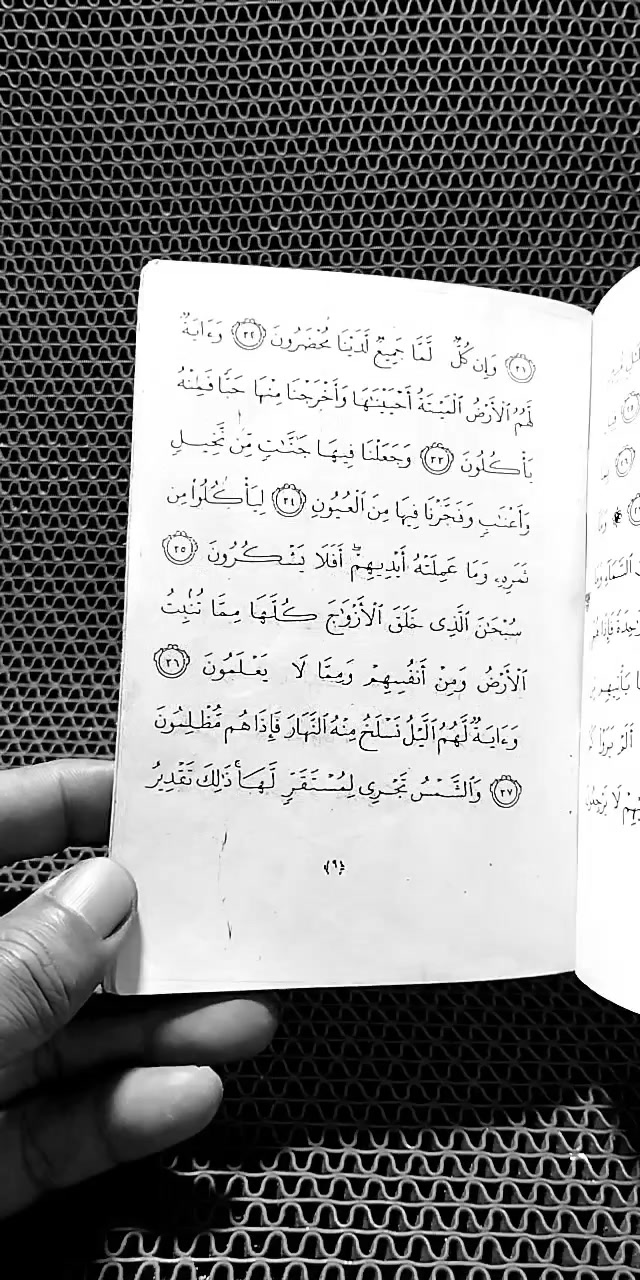 ﴿٣١﴾ وَإِن كُلٌّ لَّمَّا جَمِيعٌ لَّدَيْنَا مُحْضَرُونَ ﴿٣٢﴾ وَءَايَةٌ
لَّهُمُ ٱلْأَرْضُ ٱلْمَيْتَةُ أَحْيَيْنَٰهَا وَأَخْرَجْنَا مِنْهَا حَبًّا فَمِنْهُ
يَأْكُلُونَ ﴿٣٣﴾ وَجَعَلْنَا فِيهَا جَنَّٰتٍ مِّن نَّخِيلٍ
وَأَعْنَٰبٍ وَفَجَّرْنَا فِيهَا مِنَ ٱلْعُيُونِ ﴿٣٤﴾ لِيَأْكُلُوا۟ مِن
ثَمَرِهِۦ وَمَا عَمِلَتْهُ أَيْدِيهِمْ ۖ أَفَلَا يَشْكُرُونَ ﴿٣٥﴾
سُبْحَٰنَ ٱلَّذِى خَلَقَ ٱلْأَزْوَٰجَ كُلَّهَا مِمَّا تُنۢبِتُ
ٱلْأَرْضُ وَمِنْ أَنفُسِهِمْ وَمِمَّا لَا يَعْلَمُونَ ﴿٣٦﴾
وَءَايَةٌ لَّهُمُ ٱلَّيْلُ نَسْلَخُ مِنْهُ ٱلنَّهَارَ فَإِذَا هُم مُّظْلِمُونَ
﴿٣٧﴾ وَٱلشَّمْسُ تَجْرِى لِمُسْتَقَرٍّ لَّهَا ۚ ذَٰلِكَ تَقْدِيرُ
﴿٩﴾